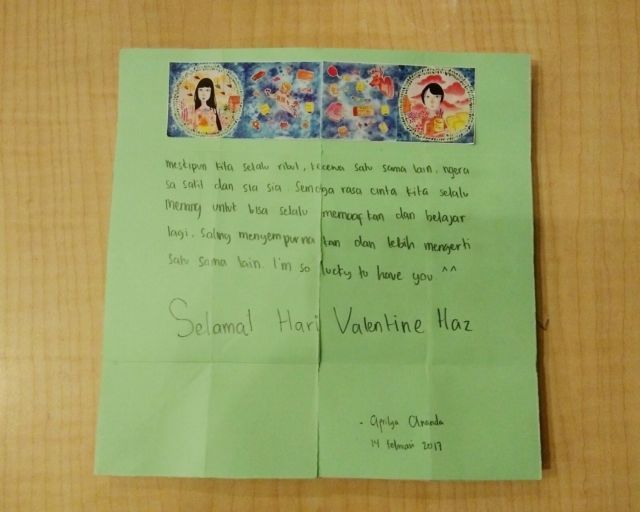 meskipun kita selalu ribut, kecewa satu sama lain, ngera
sa sakit dan sia sia. Semoga rasa cinta kita selalu
menang untuk bisa selalu memaafkan dan belajar
lagi. Saling menyempurnakan dan lebih mengerti
satu sama lain. I'm so lucky to have you ^^
Selamat Hari Valentine Haz
- Aprilya Ananda
14 Februari 2017